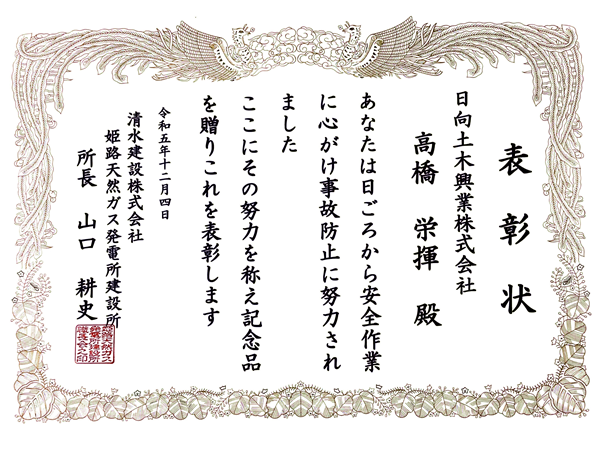 表彰状
日向土木興業株式会社
高橋 栄揮 殿
あなたは日ごろから安全作業
に心がけ事故防止に努力され
ました
ここにその努力を称え記念品
を贈りこれを表彰します
令和五年十二月四日
清水建設株式会社
姫路天然ガス発電所建設所
所長 山口 耕史